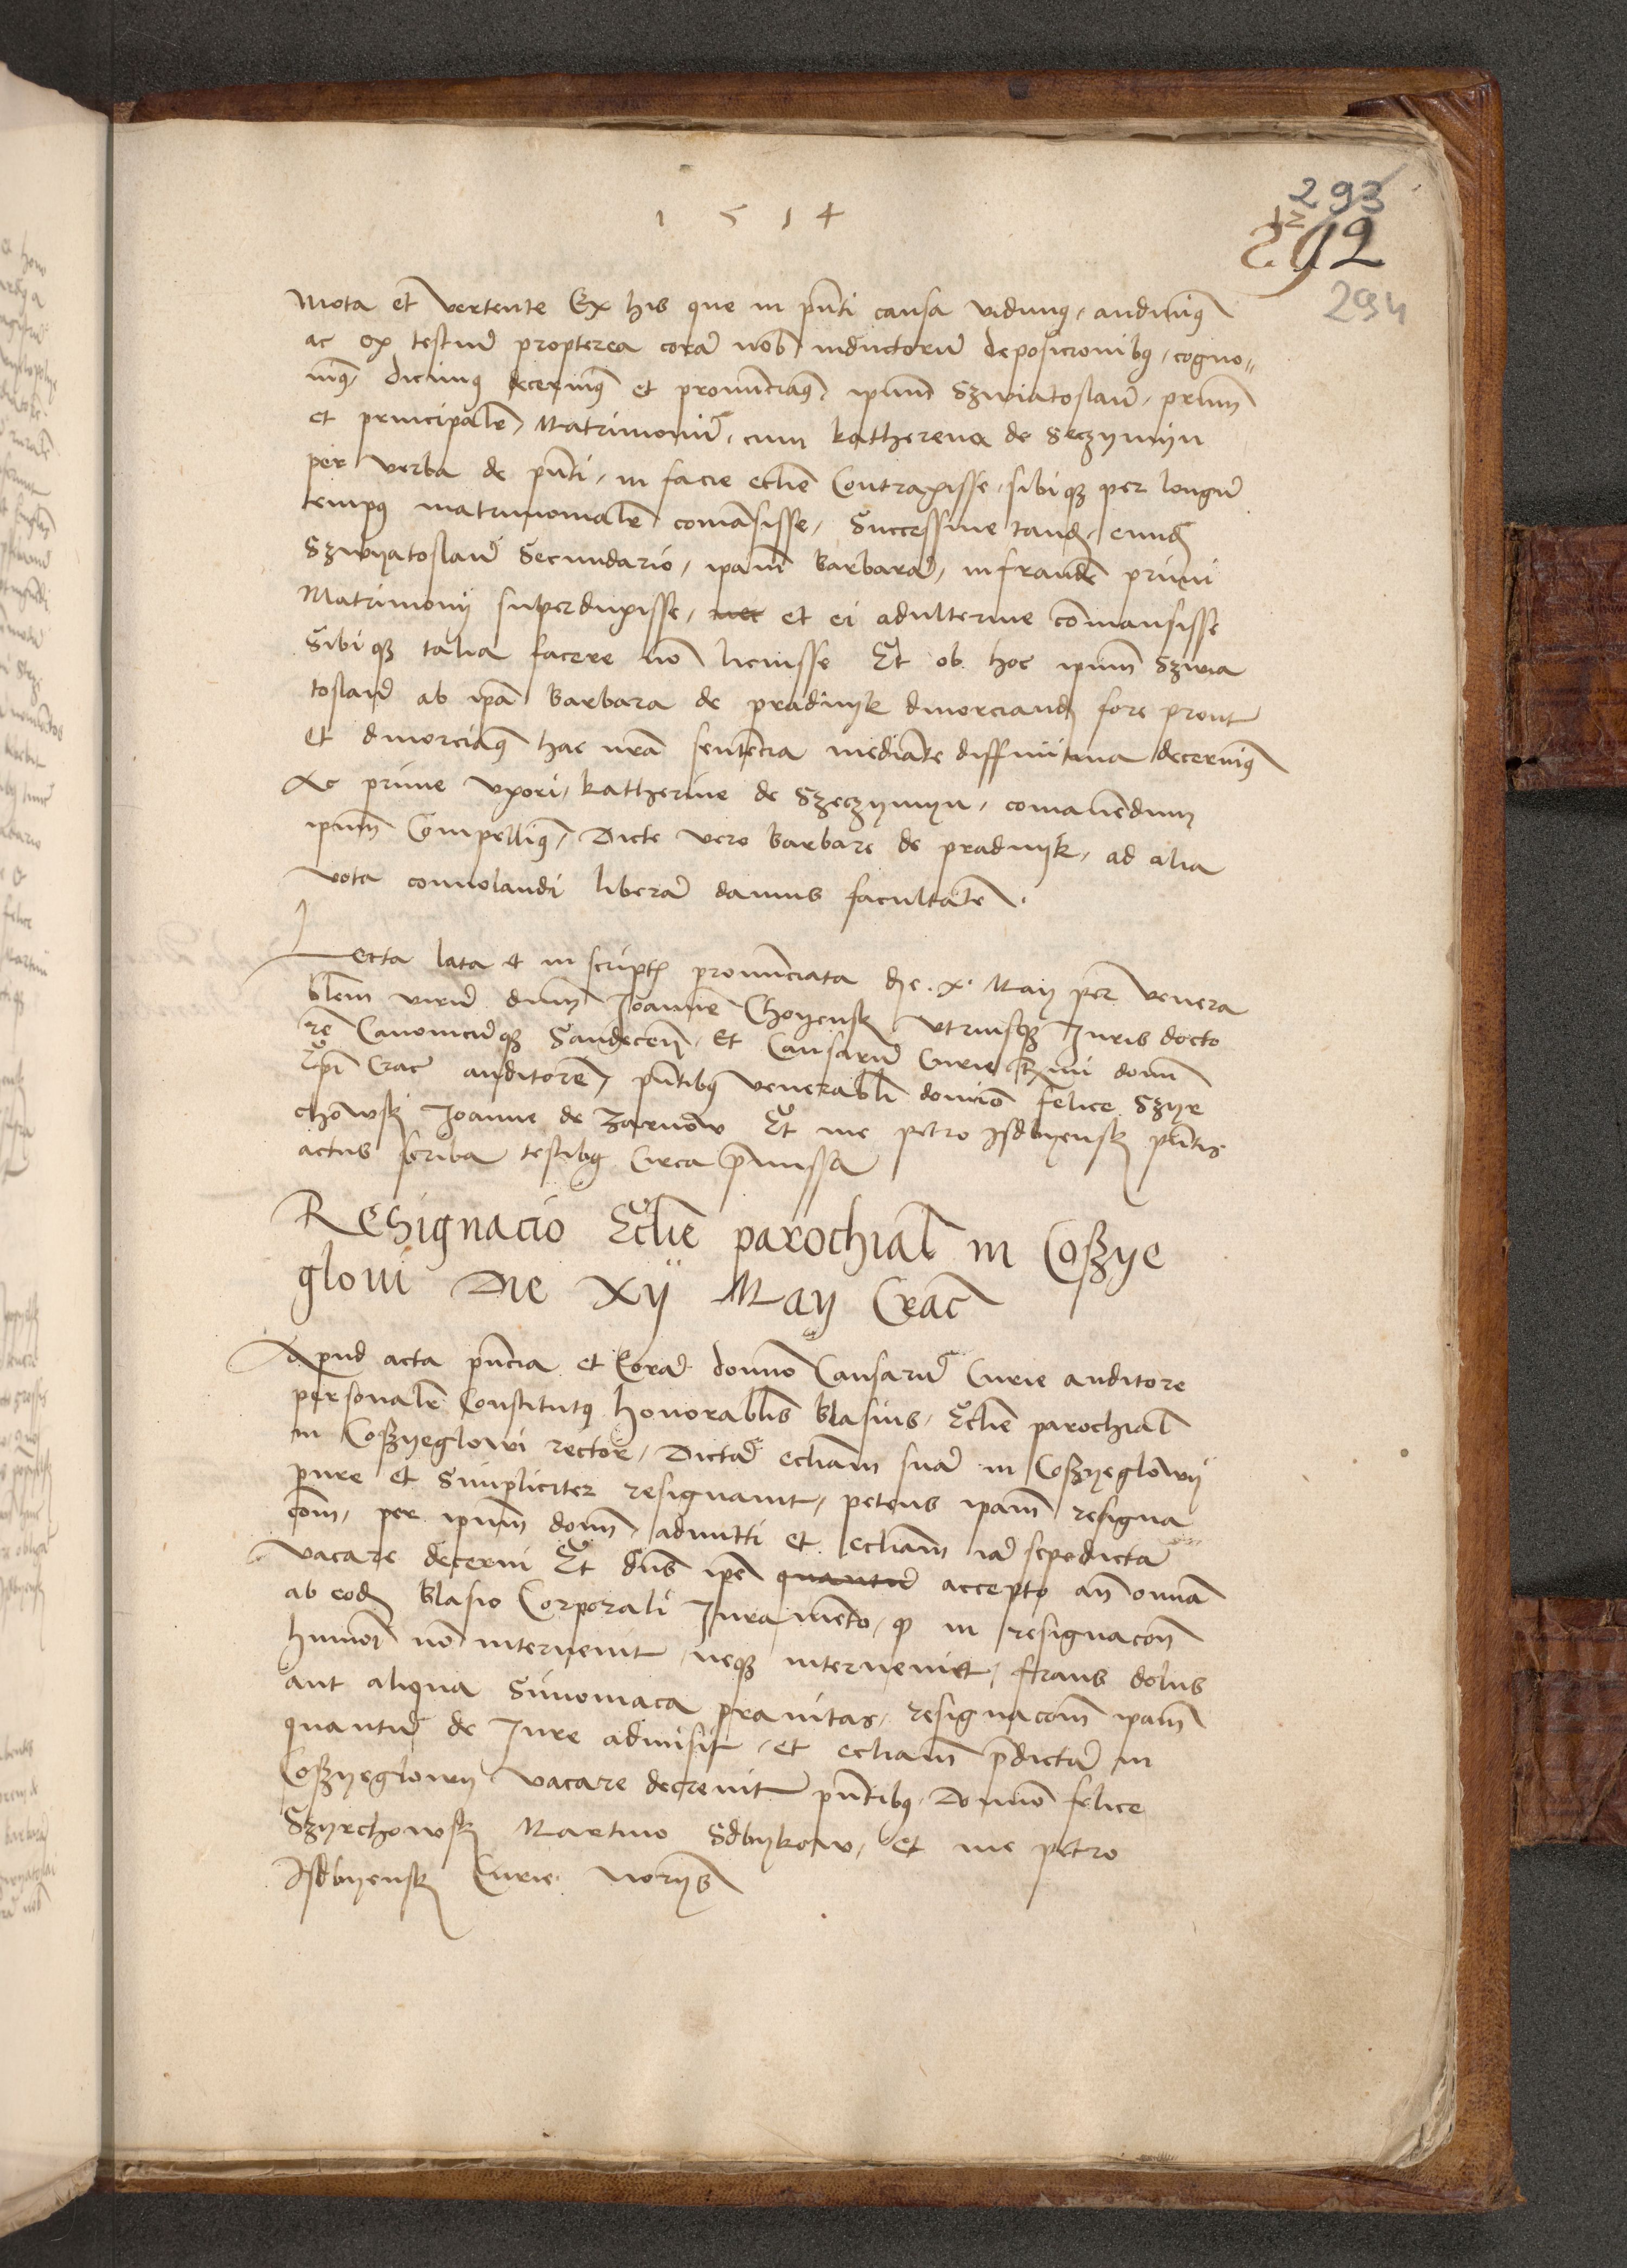 1514
293
12
292
294
mota et vertente Ex his que in pñti causa vidimus, audivimus
ac ex testiũ propterea corã nob inductoriũ deposicionibus, cogno-
mus, dicimus decernimus et pronũciamus, ipum Szwiatoslaũ, primum
et principalẽ Matrimoniũ, cum katherena de Seczymyn
per verba de pñti, in facie ecclie Contraxisse, sibique per longũ
tempus matrimonialẽ comãsisse, Successive tandẽ, eundẽ
Szwyatoslaũ Secundario, ipam barbarã, in fraudẽ primi
Matrimonij superduxisse, nec et ei adulterine cõmansisse
Sibique talia facere nõ licuisse Et ob hoc ipum Szwia
toslaũ ab ipã barbara de pradnyk divorciandũ fore prout
et divorciamus hac nrã sentẽcia mediãte diffinitiva decernimus
Ac prime uxori, katherine de Szeczymyn, comanẽdum
ipum Compellimus, Dicte vero barbare de pradnyk, ad alia
vota convolandi liberã damus facultatẽ.
Lecta lata et in scriptis pronũciata die .x. Maij per venera
blem virũ dnũm Joannẽ Choyensk Utriusque Juris docto
rẽ Canonicũque Sandecen, Et Causarũ Curie R mi domi
Epi Crac auditorẽ, pñtibus venerabli domino felice Szyr
chowsk Joanne de Zarnow Et me petro Isdbyensk pñtis
actus scriba testibus Circa p̃missa
Resignacio Ecclie parochial in Coszye
glovi Die xij Maij Crac
Apud acta pñcia et Corã domino Causarũ Curie auditore
personalr Constitutus honorablis blasius, Ecclie parochial
in Coszyeglowi rector, Dictã eccliam suã in Coszyeglowij
pure et Simpliciter resignavit, petens ipam resigna
com, per ipum dom, admitti et eccliam iã sepedictã
vacare decerni Et dns ipe quantũ accepto an omia
ab eodẽ blasio Corporali Juramẽto, q in resignacon
humoi nõ intervenit, neque interveniet, fraus dolus
aut aliqua Simoniaca pravitas, resignacom ipam
quantũ de Jure admisit, et eccliam p̃dictã in
Coszyeglowy vacare decrevit pñtibus Domino felice
Szyrchowsk Martino Sdbykow, et me petro
Isdbyensk Curie norijs